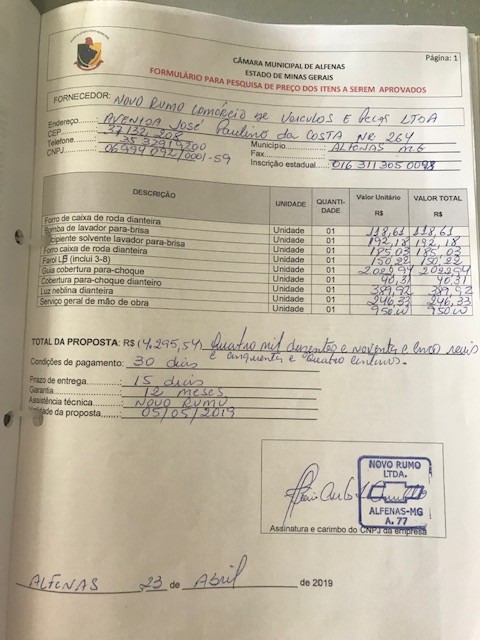 CÂMARA MUNICIPAL DE ALFENAS
Página: 1
ESTADO DE MINAS GERAIS
FORMULÁRIO PARA PESQUISA DE PREÇO DOS ITENS A SEREM APROVADOS
FORNECEDOR: NOVO RUMO COMÉRCIO DE VEICULOS E PEÇAS LTDA
Endereço: AVENIDA JOSÉ Paulino da COSTA NR 264
CEP 37132 208 Município ALFENAS MG
Telefone 35 32919200 Fax
CNPJ 06999092/0001-59 Inscrição estadual 016 311305 0098
DESCRIÇÃO UNIDADE QUANTI-DADE Valor Unitário R$ VALOR TOTAL R$
Forro de caixa de roda dianteira Unidade 01 118,61 118,61
Bomba de lavador para-brisa Unidade 01 192,18 192,18
Recipiente solvente lavador para-brisa Unidade 01 185,03 185,03
Forro caixa de roda dianteira Unidade 01 150,22 150,22
Farol LE (inclui 3-8) Unidade 01 2022,94 2022,94
Guia cobertura para-choque Unidade 01 40,31 40,31
Cobertura para-choque dianteiro Unidade 01 389,92 389,92
Luz neblina dianteira Unidade 01 246,33 246,33
Serviço geral de mão de obra Unidade 01 950,00 950,00
TOTAL DA PROPOSTA: R$ (4.295,54) Quatro mil duzentos e noventa e cinco reais
e cinquenta e quatro centavos.
Condições de pagamento: 30 dias
Prazo de entrega 15 dias
Garantia 12 meses
Assistência técnica NOVO RUMO
Validade da proposta 05/05/2019
NOVO RUMO
LTDA.
ALFENAS-MG
A. 77
Assinatura e carimbo do CNPJ da empresa
ALFENAS 23 de Abril de 2019